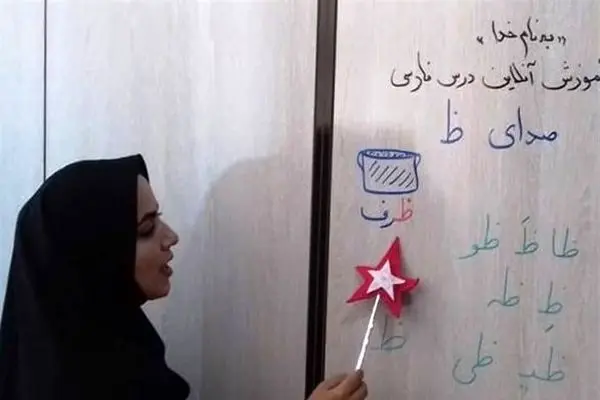 «به نام خدا»
آموزش آنلاین درس فارسی
صدای ظ
ظرف
ظا ظَ ظو
ظِ ظه
ظیـ ظی
ظ